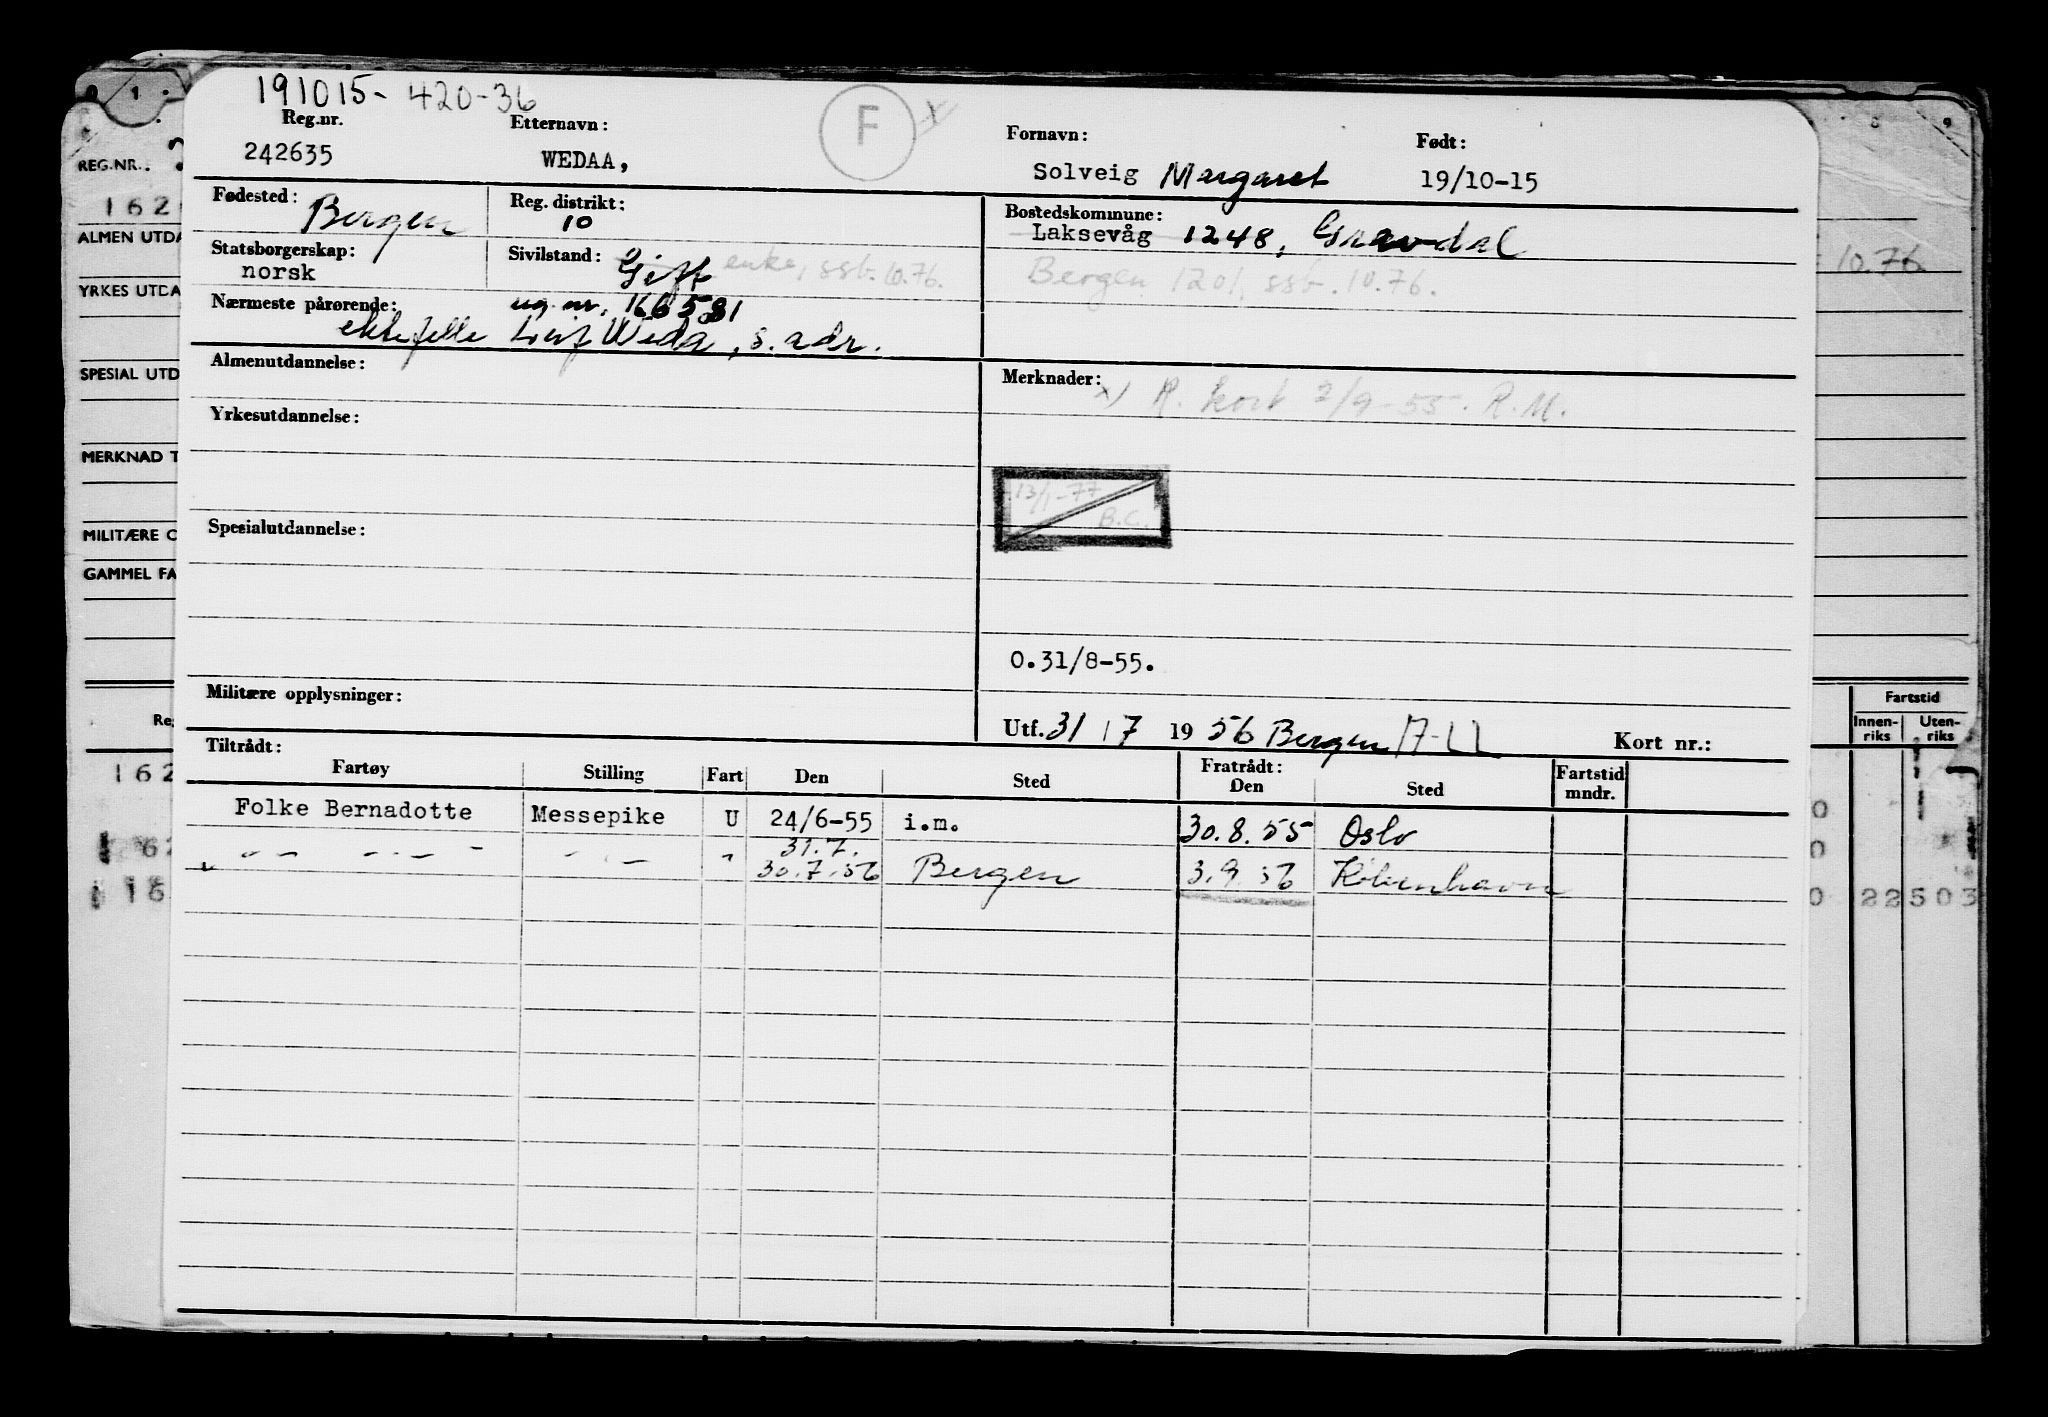 191015-420-36
Reg.nr. Etternavn: F x Fornavn: Født:
242635 WEDAA, Solveig Margaret 19/10-15
Fødested: Bergen Reg. distrikt: 10 Bostedskommune:
Laksevåg 1248, Gravdal
Statsborgerskap: norsk Sivilstand: Gift enke, ssb. 10.76.
Bergen 1201, ssb. 10.76.
Nærmeste pårørende: ug. nr. 166581
ektefelle Leif Weda, s. adr.
Almenutdannelse: Merknader:
x) R. kort 2/9-55. R.M.
Yrkesutdannelse:
13/1-77
B.C.
Spesialutdannelse:
O.31/8-55.
Militære opplysninger:
Utf. 31/7 1956 Bergen Kort nr.:
Tiltrådt: Fratrådt:
Fartøy Stilling Fart Den Sted Den Sted Fartstid mndr.
Folke Bernadotte Messepike U 24/6-55 i.m. 30.8.55 Oslo
31.7.
— " — — " — — " — " 30.7.56 Bergen 3.9.56 København
REG.NR.
162
ALMEN UTDA
YRKES UTDA
SPESIAL UTD
MERKNAD T
MILITÆRE O
GAMMEL FA
Re
162
62
16
10.76.
Fartstid
Innen-riks Uten-riks
0
0
0 22503